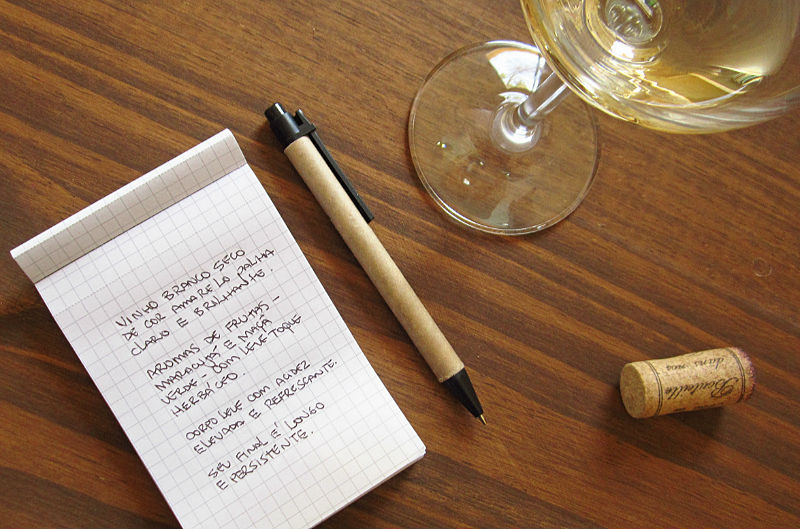 VINHO BRANCO SECO
DE COR AMARELO PALHA
CLARO E BRILHANTE.
AROMAS DE FRUTAS –
MARACUJÁ E MAÇÃ
VERDE, COM LEVE TOQUE
HERBÁCEO.
CORPO LEVE COM ACIDEZ
ELEVADA E REFRESCANTE.
SEU FINAL É LONGO
E PERSISTENTE.
dans nos
Bouteille